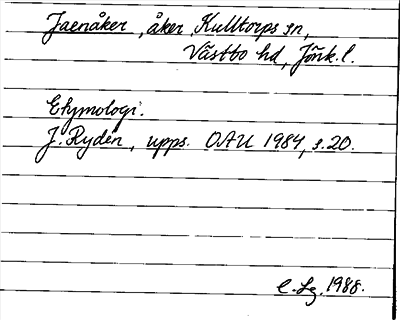 Jaenåker, åker, Kulltorps sn,
Västbo hd, Jönk. l.
Etymologi.
J. Rydén, upps. OAU 1984, s. 20.
C. Lg. 1988.